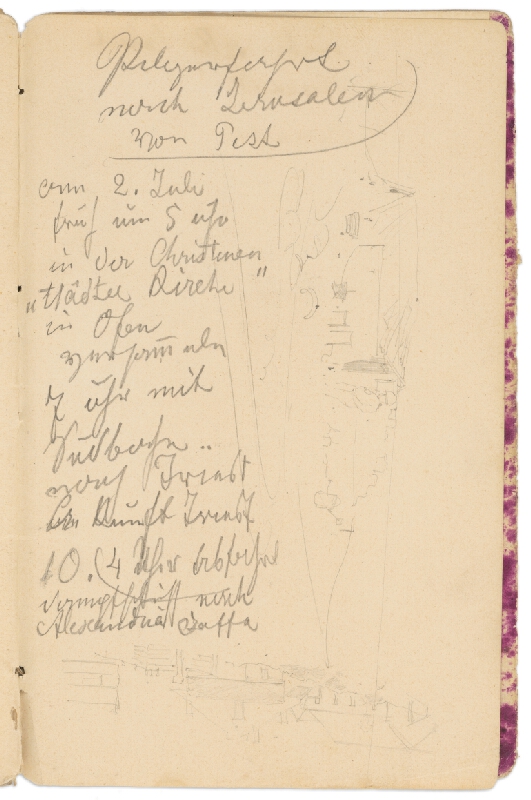 Pilgerfahrt
nach Jerusalem
von Pest
am 2. Juli
früh um 5 uhr
in der Christinen
"städter Kirche"
in Ofen
versam̅eln
7 uhr mit
Südbahn
nach Triest
Ankunft Triest
10. (4 Uhr Abfahrt
dampfschiff nach
Alexandria Jaffa